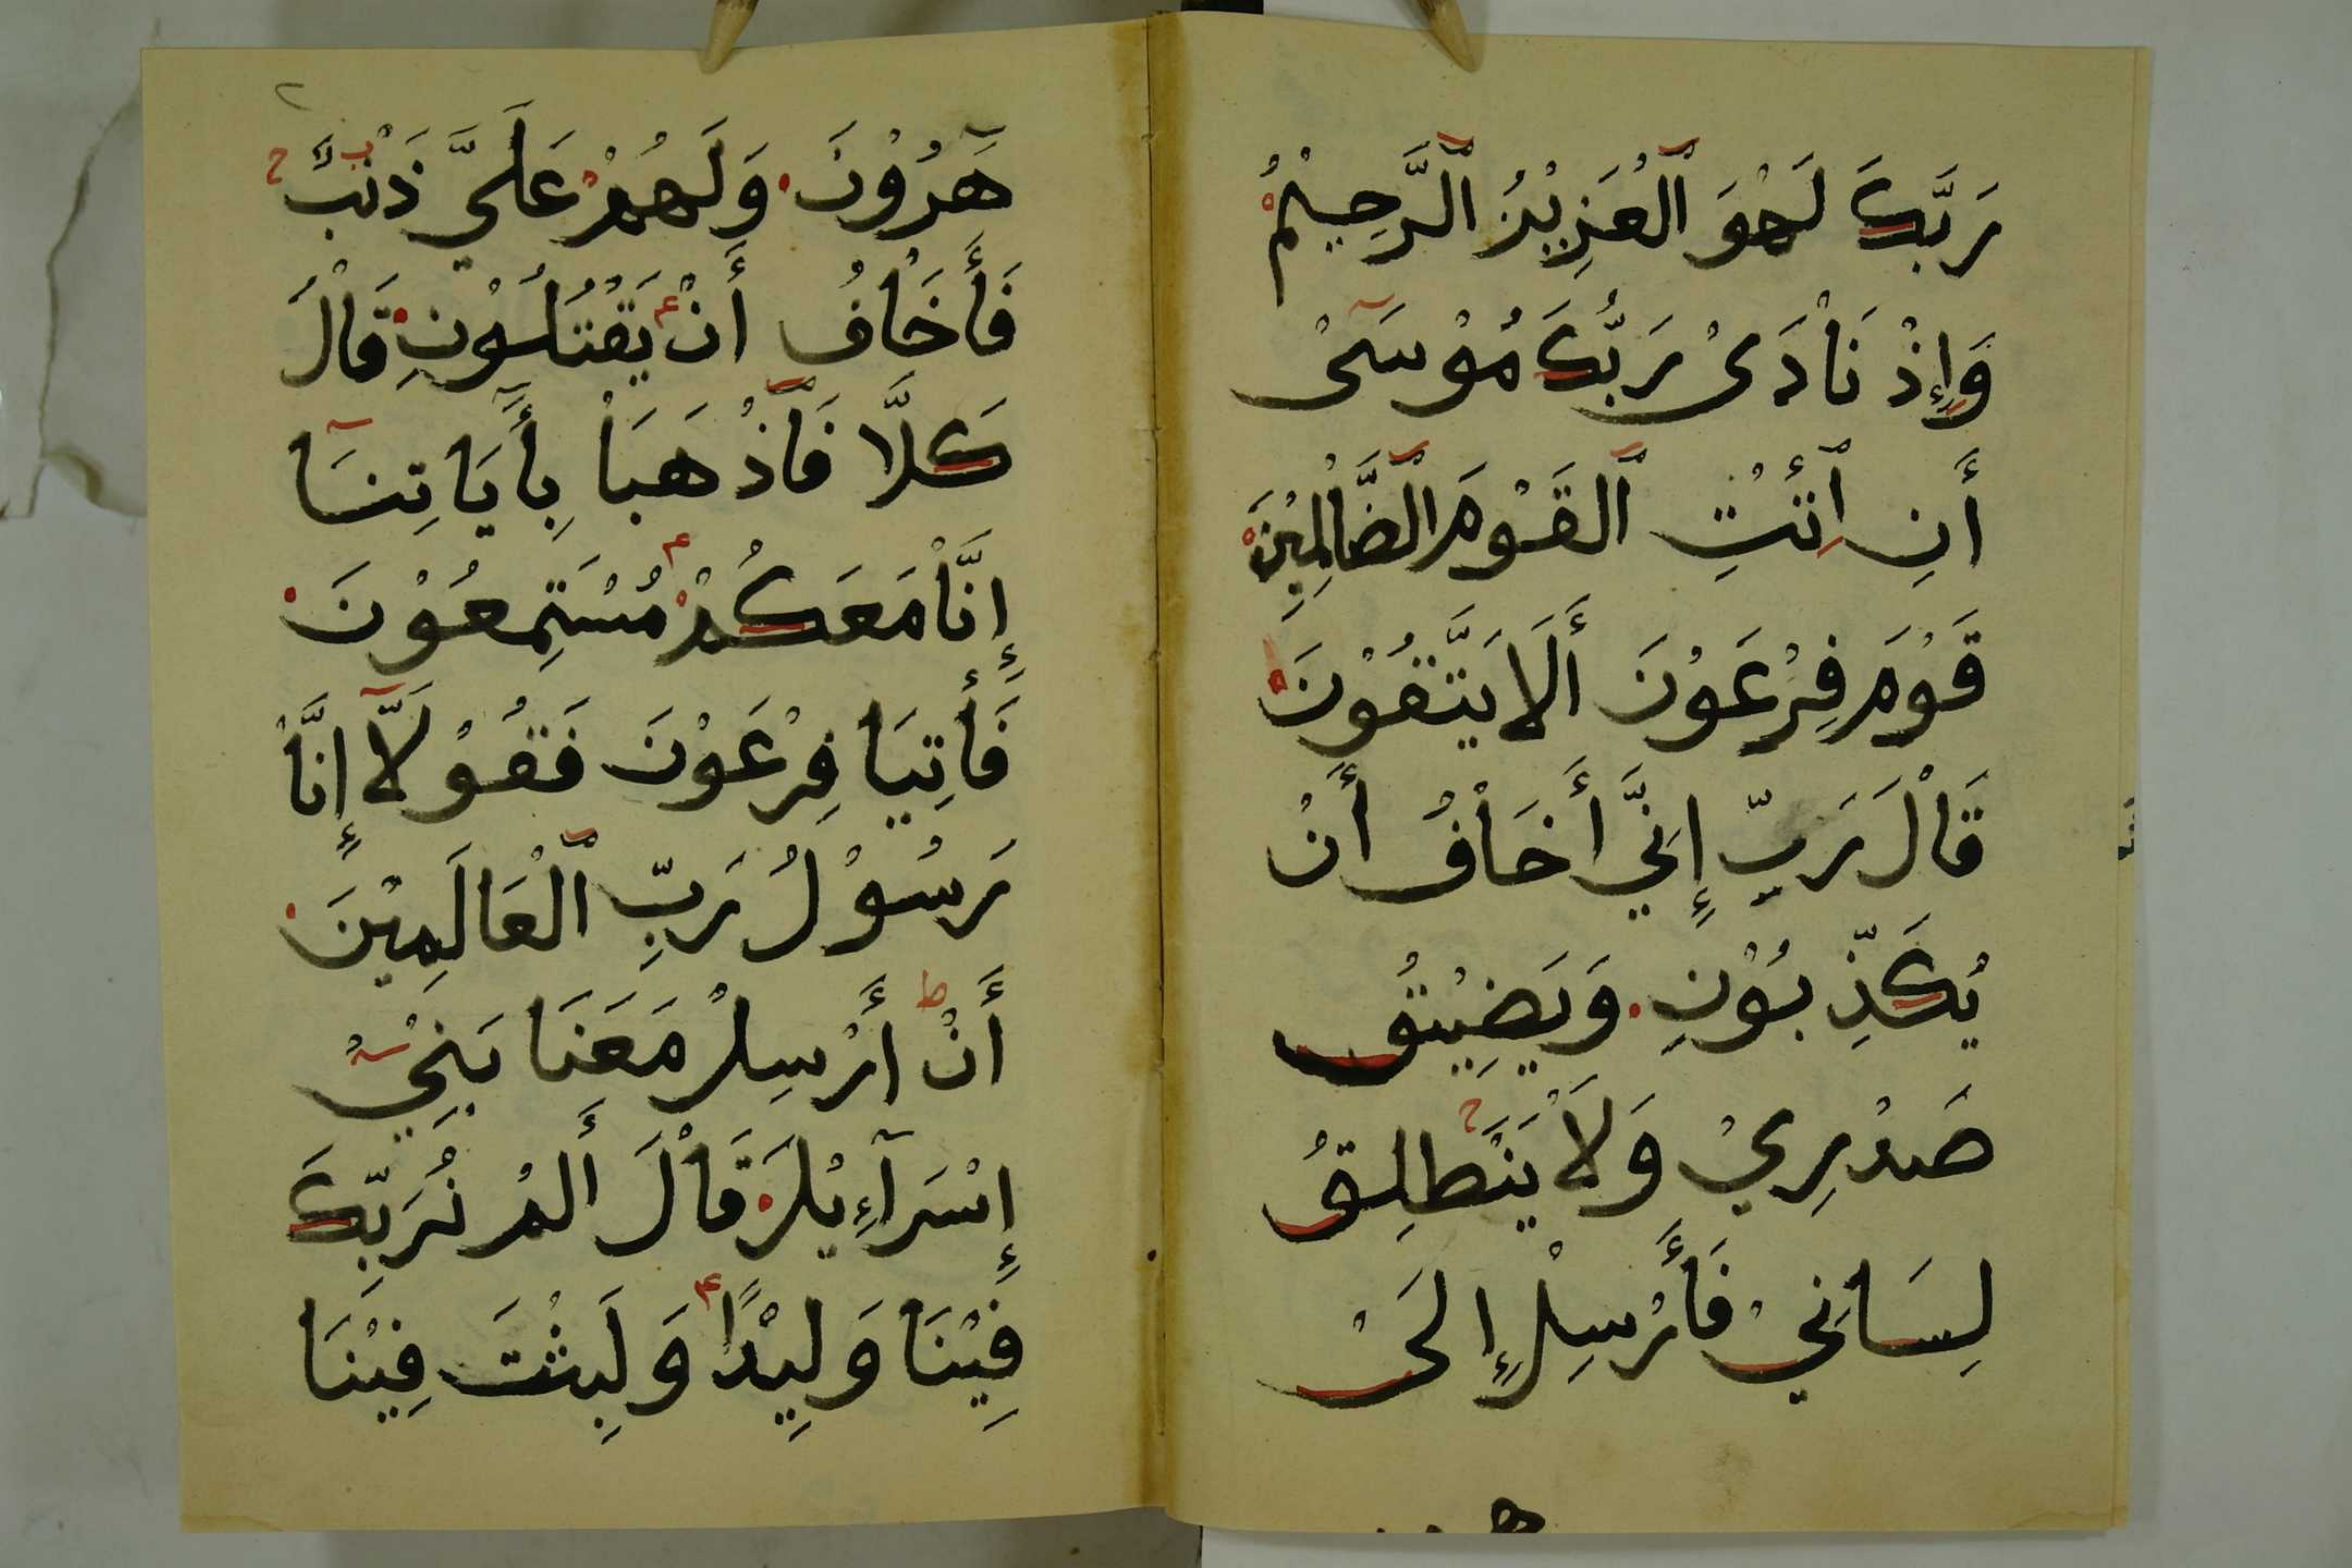 رَبَّكَ لَهُوَ ٱلْعَزِيْزُ ٱلرَّحِيْمُ
وَإِذْ نَاْدَىْ رَبُّكَ مُوْسَىْ
أَنِ ٱئْتِ ٱلْقَوْمَ ٱلظَّالِمِيْنَ
قَوْمَ فِرْعَوْنَ أَلَا يَتَّقُوْنَ
قَاْلَ رَبِّ إِنِّيَ أَخَاْفُ أَنْ
يُكَذِّبُوْنِ وَيَضِيْقُ
صَدْرِيْ وَلَاْ يَنْطَلِقُ
لِسَانِيْ فَأَرْسِلْ إِلَىْ
هَٰرُوْنَ وَلَهُمْ عَلَيَّ ذَنْبٌ
فَأَخَاْفُ أَنْ يَقْتُلُوْنِ قَاْلَ
كَلَّا فَٱذْهَبَاْ بِأَيَاتِنَا
إِنَّاْ مَعَكُمْ مُسْتَمِعُوْنَ
فَأْتِيَا فِرْعَوْنَ فَقُوْلَآ إِنَّاْ
رَسُوْلُ رَبِّ ٱلْعَالَمِيْنَ
أَنْ أَرْسِلْ مَعَنَا بَنِيْ
إِسْرَآءِيْلَ قَاْلَ أَلَمْ نُرَبِّكَ
فِيْنَا وَلِيْدًا وَلَبِثْتَ فِيْنَا